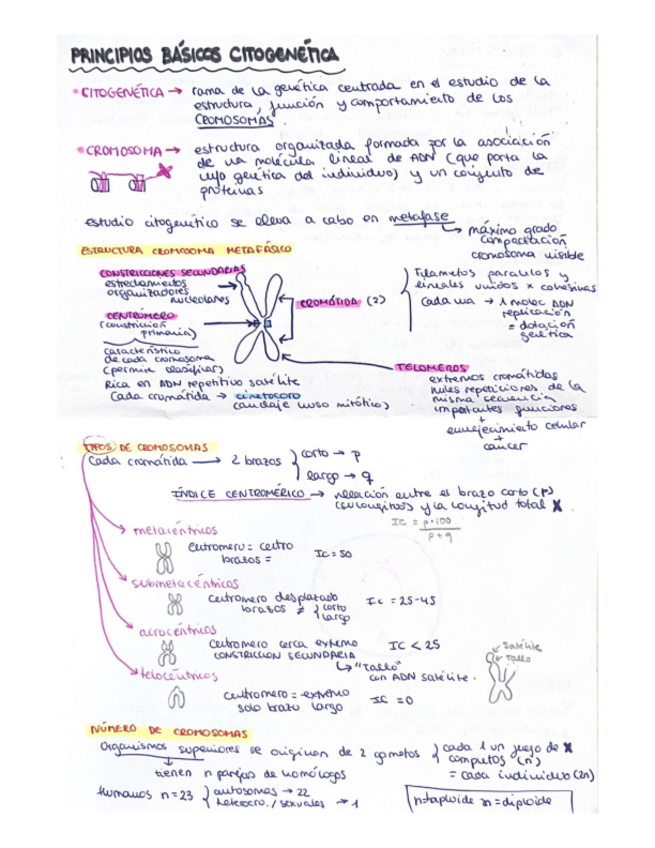 PRINCIPIOS BÁSICOS CITOGENÉTICA
• CITOGENÉTICA → rama de la genética centrada en el estudio de la
estructura, función y comportamiento de los
CROMOSOMAS.
• CROMOSOMA → estructura organizada formada por la asociación
de una molécula lineal de ADN (que porta la
info genética del individuo) y un conjunto de
proteínas
estudio citogenético se lleva a cabo en metafase
→ máximo grado
compactación
cromosoma visible
ESTRUCTURA CROMOSOMA METAFÁSICO
CONSTRICCIONES SECUNDARIAS
estrechamientos
organizadores
nucleolares
CENTRÓMERO
(constricción
primaria)
característico
de cada cromosoma
(permite clasificar)
Rica en ADN repetitivo satélite
Cada cromátida → cinetocoro
(anclaje huso mitótico)
CROMÁTIDA (2)
Filamentos paralelos y
lineales unidos x cohesinas
Cada una → 1 molec ADN
replicación
= dotación
genética
TELÓMEROS
extremos cromátidas
miles repeticiones de la
misma secuencia
importantes funciones
+
envejecimiento celular
+
cáncer
TIPOS DE CROMOSOMAS
Cada cromátida → 2 brazos
corto → p
largo → q
ÍNDICE CENTROMÉRICO → relación entre el brazo corto (p)
(su longitud) y la longitud total X.
IC = p·100
p+q
metacéntricos
centrómero = centro
brazos =
IC = 50
submetacéntricos
centrómero desplazado
brazos ≠
corto
largo
IC = 25-45
acrocéntricos
centrómero cerca extremo
IC < 25
CONSTRICCIÓN SECUNDARIA
→ "Tallo"
con ADN satélite.
satélite
Tallo
telocéntricos
centrómero = extremo
solo brazo largo
IC = 0
NÚMERO DE CROMOSOMAS
Organismos superiores se originan de 2 gametos
cada 1 un juego de X
completos (n)
= cada individuo (2n)
tienen n parejas de homólogos
Humanos n = 23
autosomas → 22
heterocro. / sexuales → 1
n=haploide 2n = diploide